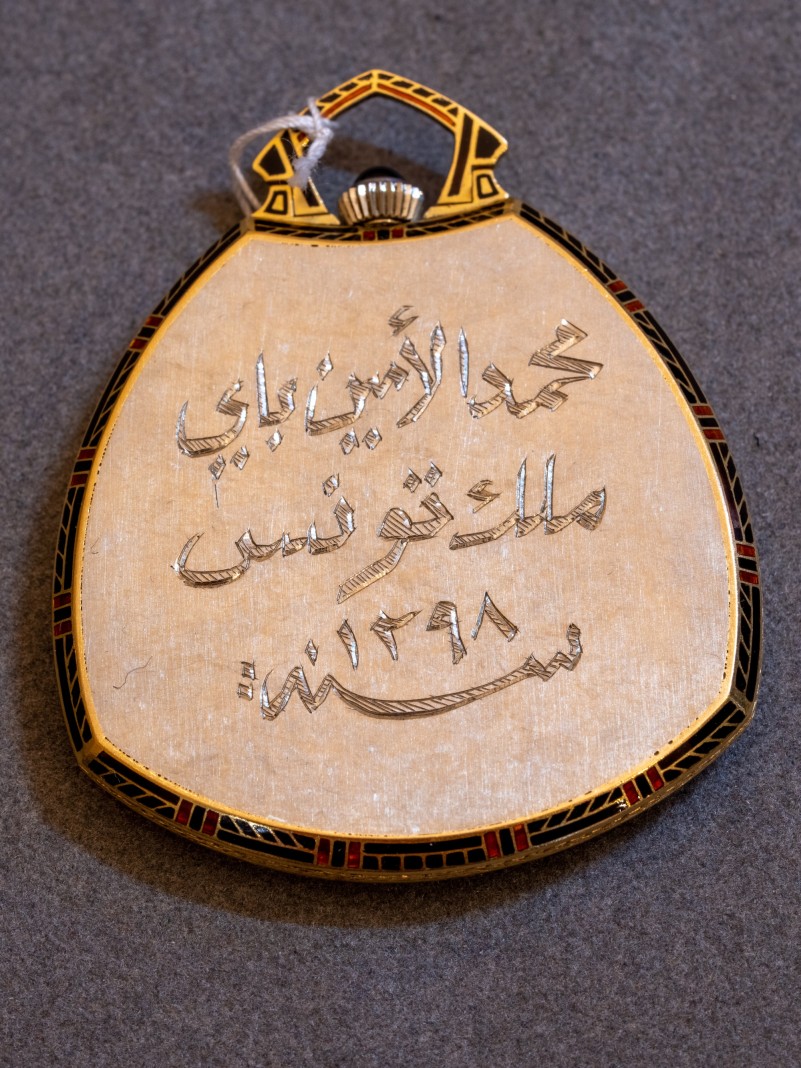 محمد الأمين باي
ملك تونس
سنة ١٢٩٨